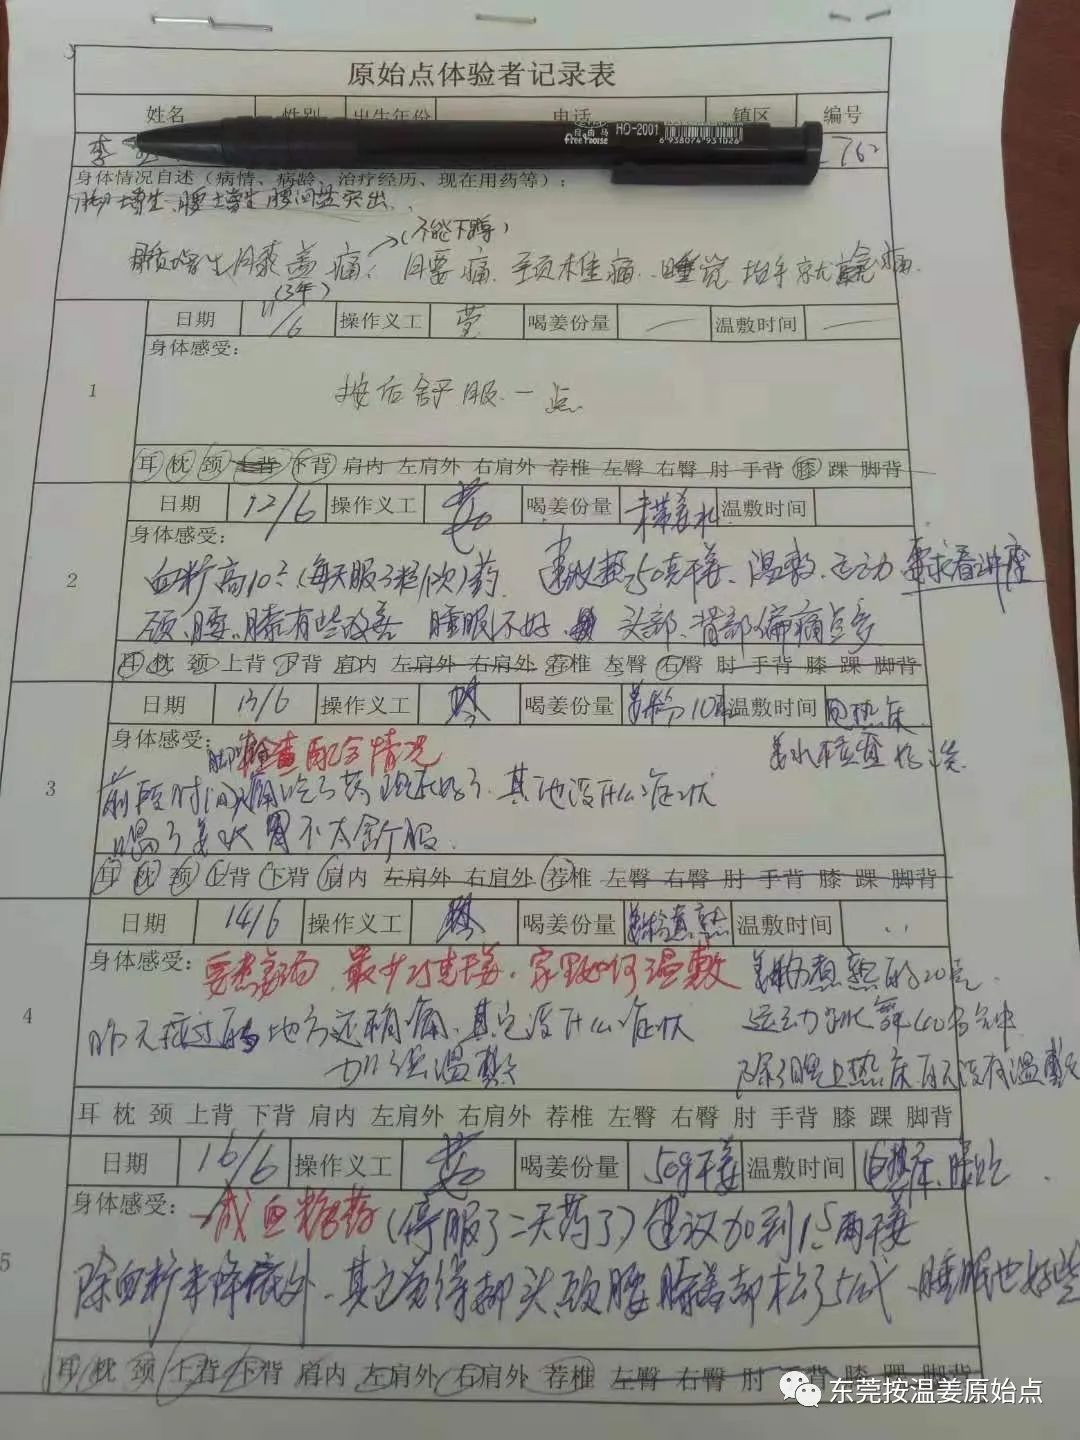 原始点体验者记录表
姓名 性别 出生年份 电话 镇区 编号
李 762
自由马 Free house HO-2001 6 938074 931026
身体情况自述（病情、病龄、治疗经历、现在用药等）：
增生、腰增生 腰间盘突出.
(不能下蹲)
膝盖痛, 腰痛. 颈椎痛. 睡觉 手就 痛.
(3年)
日期 11/6 操作义工 喝姜份量 — 温敷时间 —
身体感受：
按后舒服一点
1
耳 枕 颈 上背 下背 肩内 左肩外 右肩外 荐椎 左臀 右臀 肘 手背 膝 踝 脚背
日期 12/6 操作义工 喝姜份量 未带姜水 温敷时间
身体感受：
血糖高10. (每天服3粒/次)药. 建议 50克干姜、温敷、运动 要求看讲座
2
颈、腰、膝有些改善 睡眠不好 头部、背部偏痛点多
耳 枕 颈 上背 下背 肩内 左肩外 右肩外 荐椎 左臀 右臀 肘 手背 膝 踝 脚背
日期 13/6 操作义工 喝姜份量 姜粉10 温敷时间 热床
身体感受：
检查配合情况
3
前段时间 痛吃了药现在好了. 其他没什么症状
喝了姜水胃不太舒服.
耳 枕 颈 上背 下背 肩内 左肩外 右肩外 荐椎 左臀 右臀 肘 手背 膝 踝 脚背
日期 14/6 操作义工 喝姜份量 温敷时间
身体感受：
要煮姜汤, 最少25克干姜. 家里如何温敷
4
昨天按过的地方还稍痛、其它没什么症状
加强温敷
20克.
运动 40多分钟
除了晚上热床 没有温敷
耳 枕 颈 上背 下背 肩内 左肩外 右肩外 荐椎 左臀 右臀 肘 手背 膝 踝 脚背
日期 16/6 操作义工 喝姜份量 50g干姜 温敷时间
身体感受：
减血糖药 (停服了二天药了) 建议加到1.5两干姜
5
除血糖未降 外. 其它觉得 头、颈、腰、膝盖都松了5成、睡眠也好些
耳 枕 颈 上背 下背 肩内 左肩外 右肩外 荐椎 左臀 右臀 肘 手背 膝 踝 脚背
东莞按温姜原始点